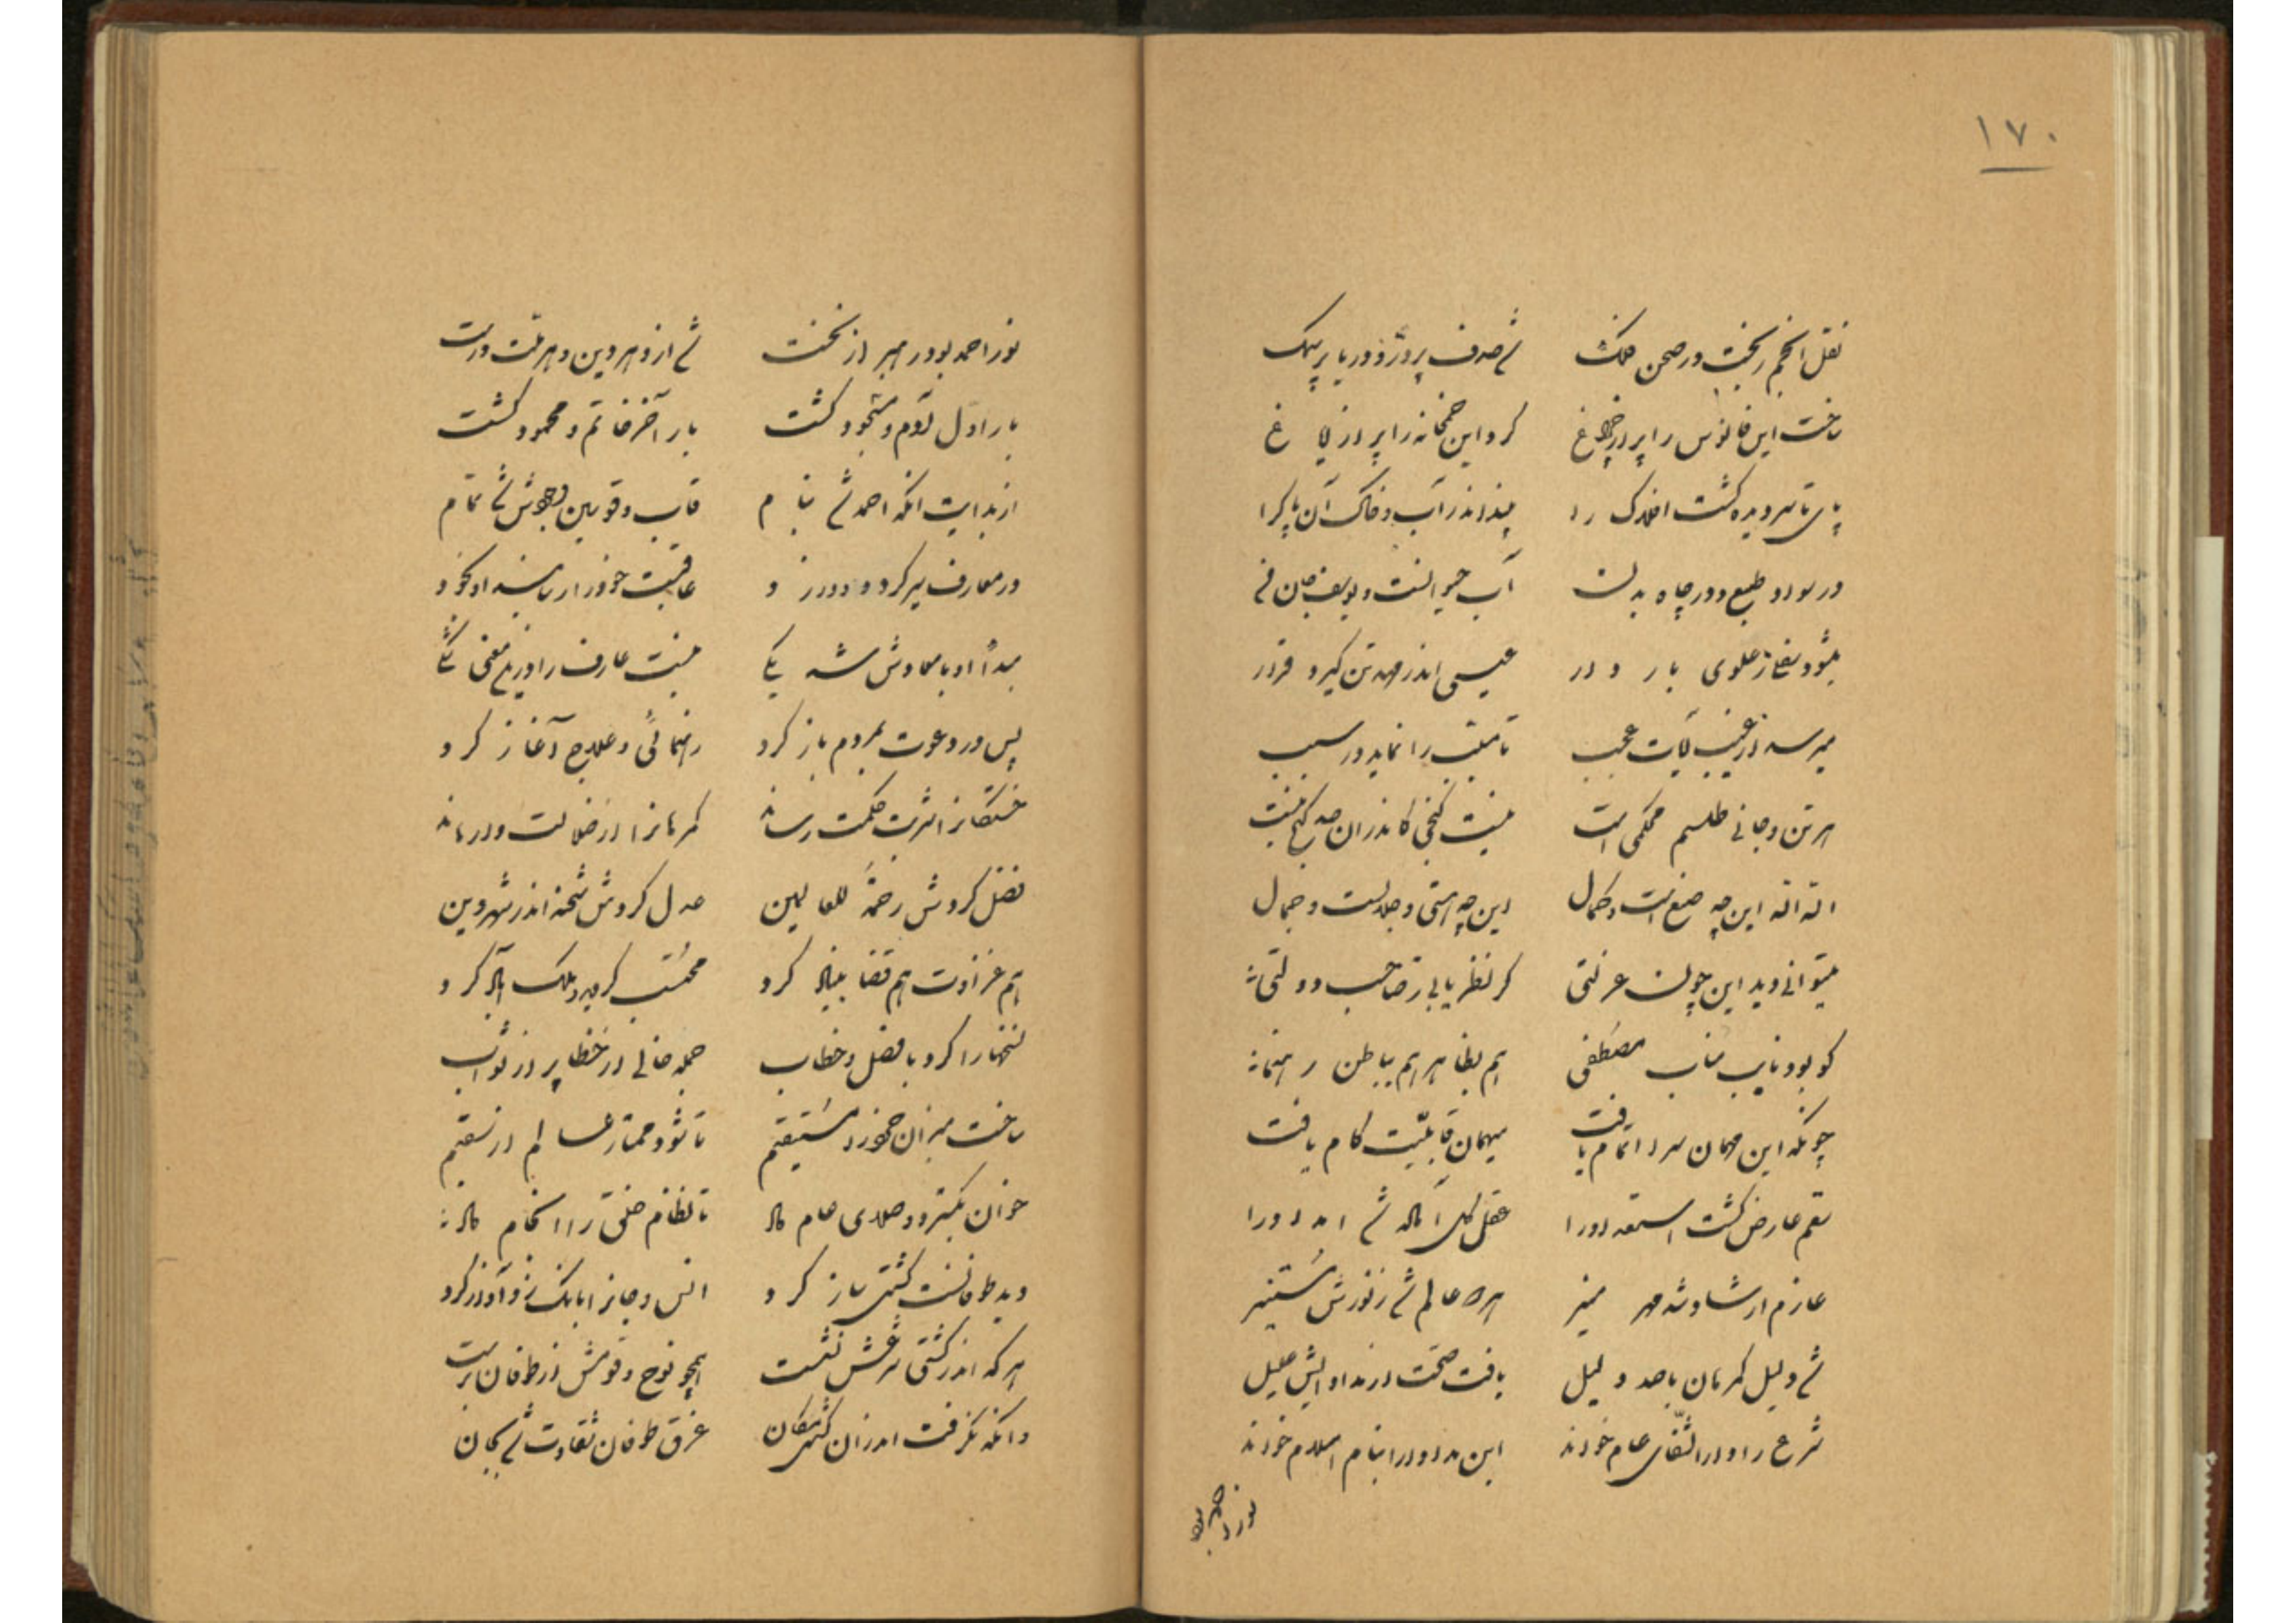 ۱۷۰
نقل انجم ریخت در صحن فلک شد صدف پر درّ و دریا پر سمک
ساخت این فانوس را پر از چراغ کرد این خمخانه را پر از ایاغ
پای تا سر دیده گشت افلاک را بیند اندر آب و خاک آن پاک را
در سواد طبع و در چاه بدن آب حیوانست و یوسف جان فن
میشود نفخاز علوی باردار عیسی اندر مهد تن گیرد قرار
میرسد از غیب آیات عجب تا مسبّب را نماید در سبب
هر تن و جانی طلسم محکمی است نیست گنجی کاندران صد گنج نیست
الله الله این چه صنع است و کمال این چه هستی و جلالست و جمال
میتوانی دید این چون عزلتی گر نظر یابی ز صاحب دولتی
کو بود نایب مناب مصطفی هم بظاهر هم بباطن رهنما
چونکه این مهمان سرا اتمام یافت میهمان قابلیّت کام یافت
سقم عارض گشت استعداد را عقل کل آماده شد امداد را
عازم ارشاد شد مهر منیر همه عالم شد ز نورش مستنیر
شد دلیل گمرهان با صد دلیل یافت صحّت از مداوایش علیل
شرع را دار الشّفای عام خواند این مداوا را بنام اسلام خواند
نور احمد
نور احمد بود رهبر از نخست شد ازو هر دین و هر ملّت درست
بار اوّل آدم و مسجود گشت بار آخر خاتم و محمود گشت
از بدایت آنکه احمد شد بنام قاب و قوسین وجودش شد تمام
در معارف سیر کرد و دور زد عاقبت خود را رساند او بخود
مبدأ او با معادش شد یکی نیست عارف را درین معنی شکی
پس در دعوت بمردم باز کرد رهنمائی و علاج آغاز کرد
خستگانرا شربت حکمت رساند گمرهانرا از ضلالت وارهاند
فضل کردش رحمةً للعالمین عدل کردش شحنه اندر شهر دین
هم غزاوت هم قضا بنیاد کرد محتسب گردید و ملک آباد کرد
نسخهارا کرد با فصل و خطاب جمله خالی از خطا پر از ثواب
ساخت میزان خرد را مستقیم تا شود ممتاز سالم از سقیم
خوان بگسترد و صلای عام داد تا نظام خلق را انجام داد
دید طوفانست کشتی ساز کرد انس و جانرا بانگ زد و آواز کرد
هر که اندر کشتی شرعش نشست همچو نوح و قومش از طوفان برست
وانکه نگرفت اندران کشتی مکان غرق طوفان شقاوت شد بجان